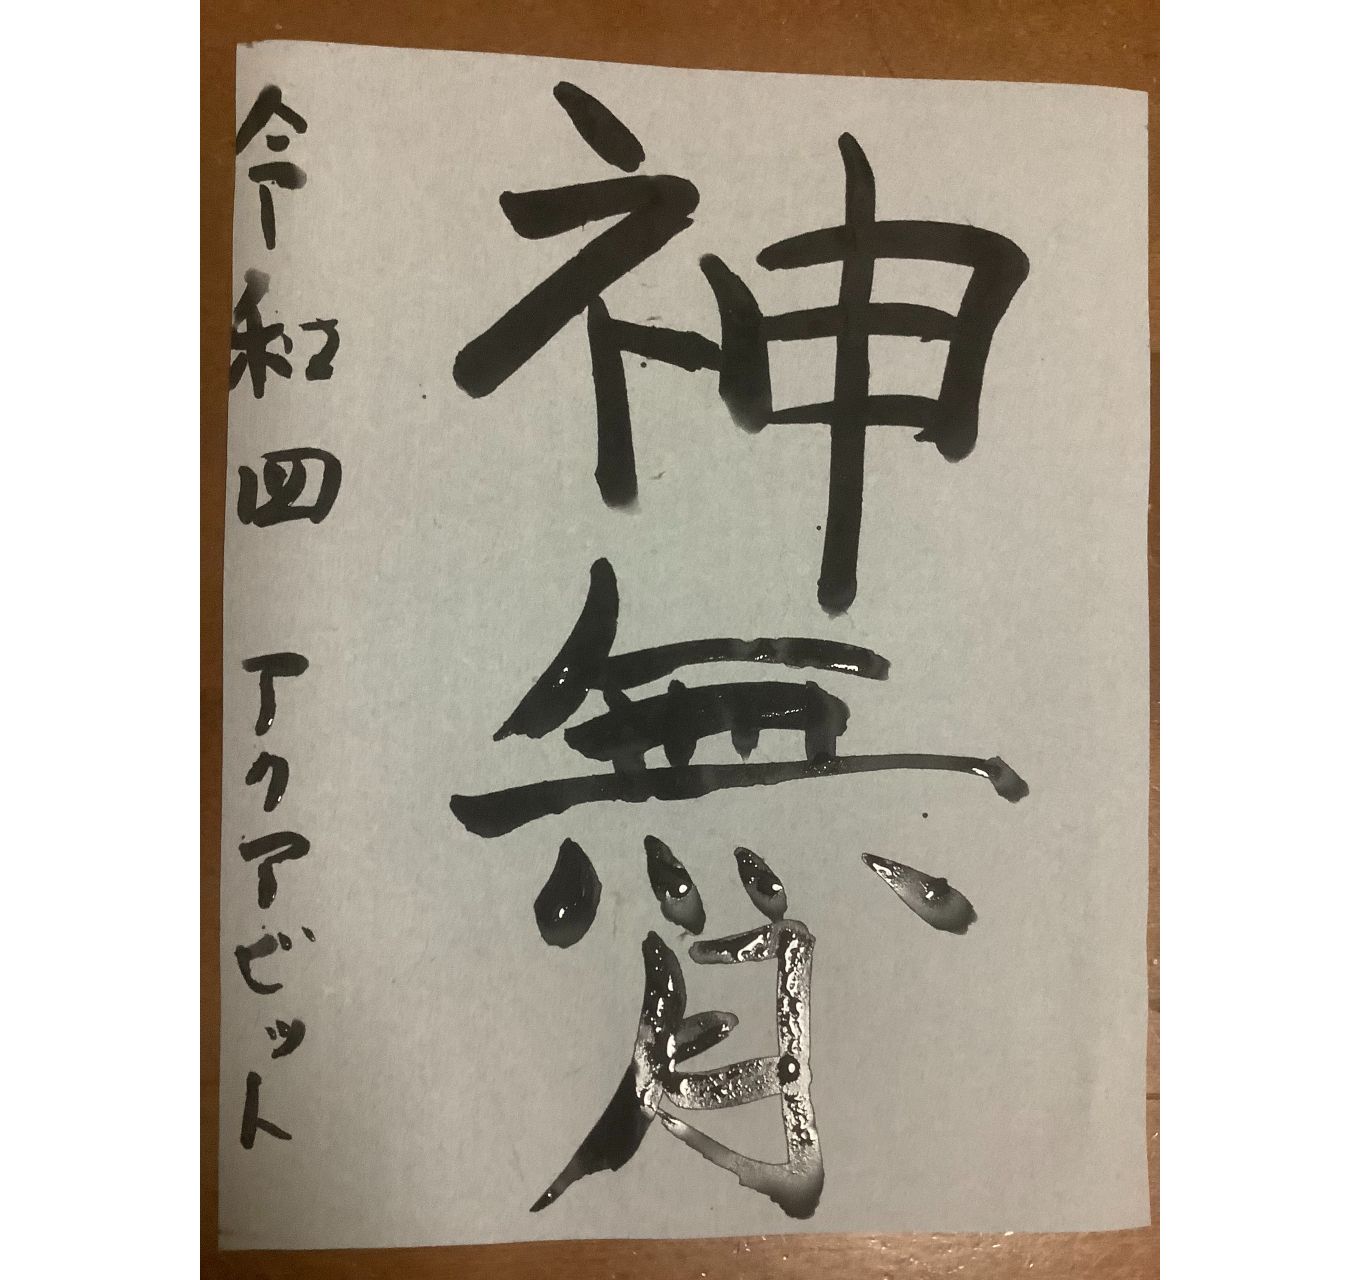 神無月
令和四 アクアビット